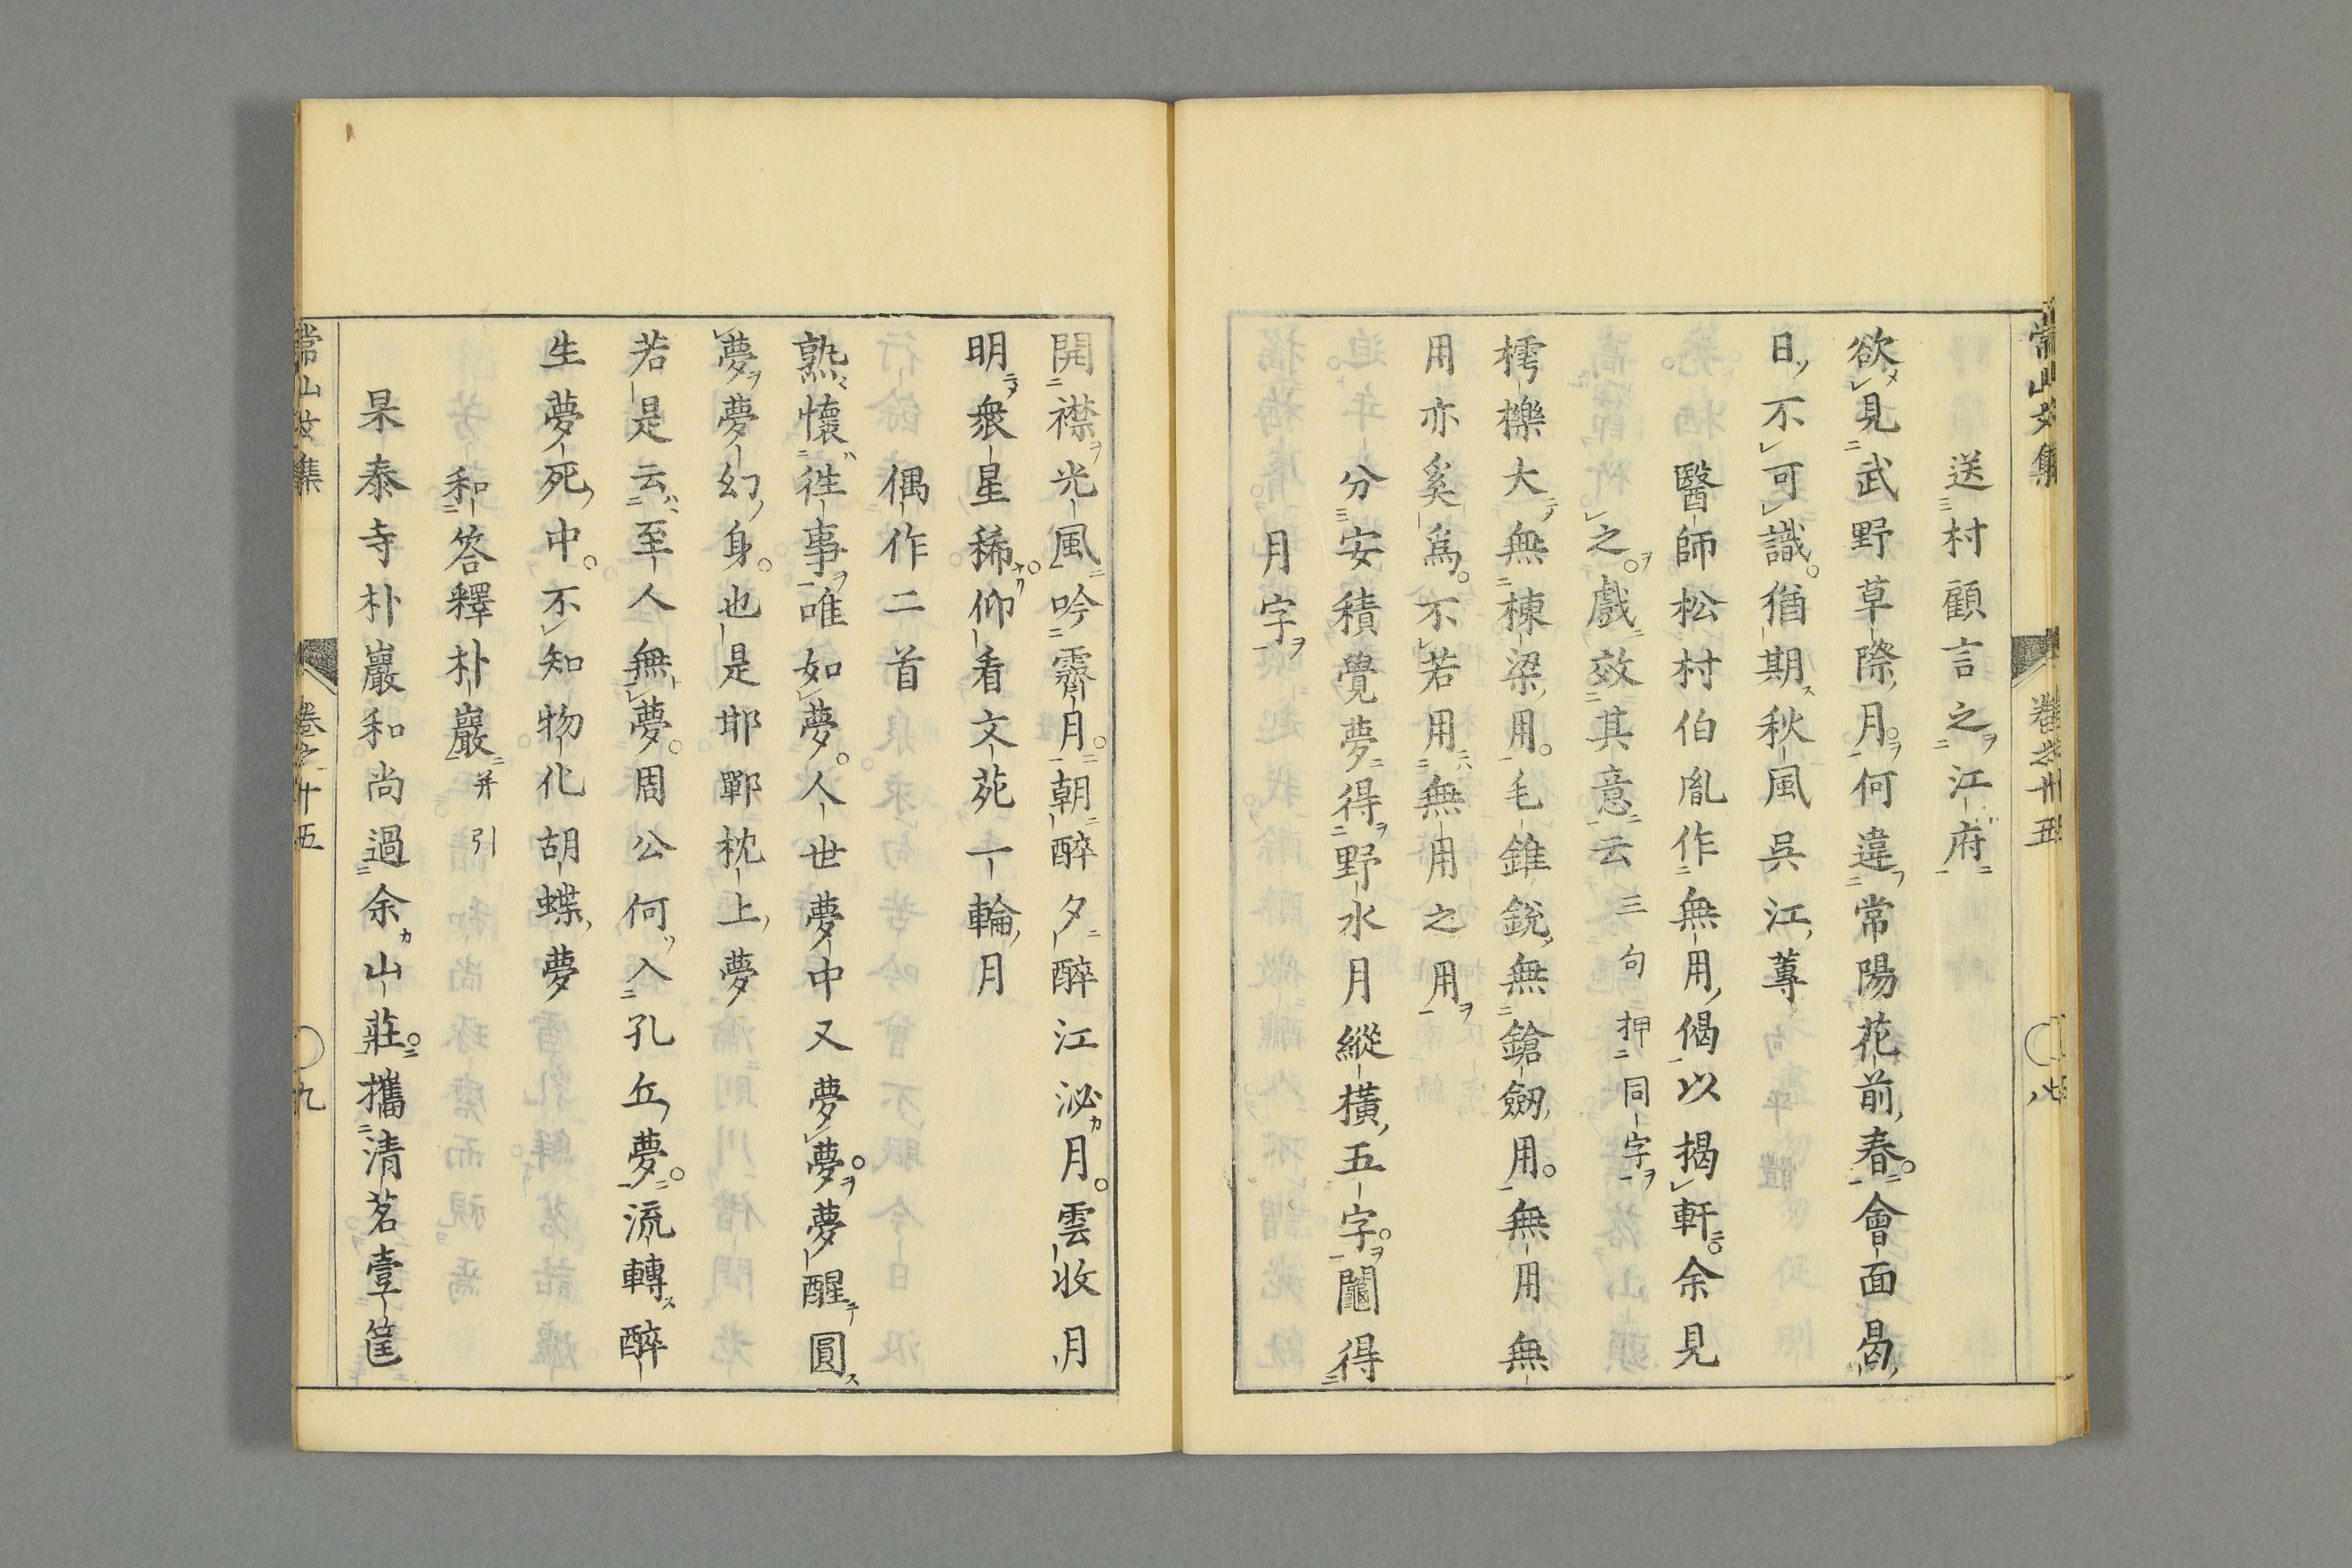 常山文集
卷之十五
八
送村顧言之江府
欲見武野草際月何違常陽花前春會面曷
日不可識猶期秋風吳江蓴
醫師松村伯胤作無用偈以揭軒余見
之戲效其意云三句押同字
樗櫟大無棟梁用毛錐銳無鎗劒用無用無
用亦奚爲不若用無用之用
分安積覺夢得野水月縱橫五字鬮得
月字
開襟光風吟霽月朝醉夕醉江泌月雲收月
明衆星稀仰看文苑一輪月
偶作二首
熟懷徃事唯如夢人世夢中又夢夢夢醒圓
夢夢幻身也是邯鄲枕上夢
若是云至人無夢周公何入孔丘夢流轉醉
生夢死中不知物化胡蝶夢
和答釋朴巖并引
杲泰寺朴巖和尚過余山莊攜清茗壹筐
常山文集
卷之十五
九